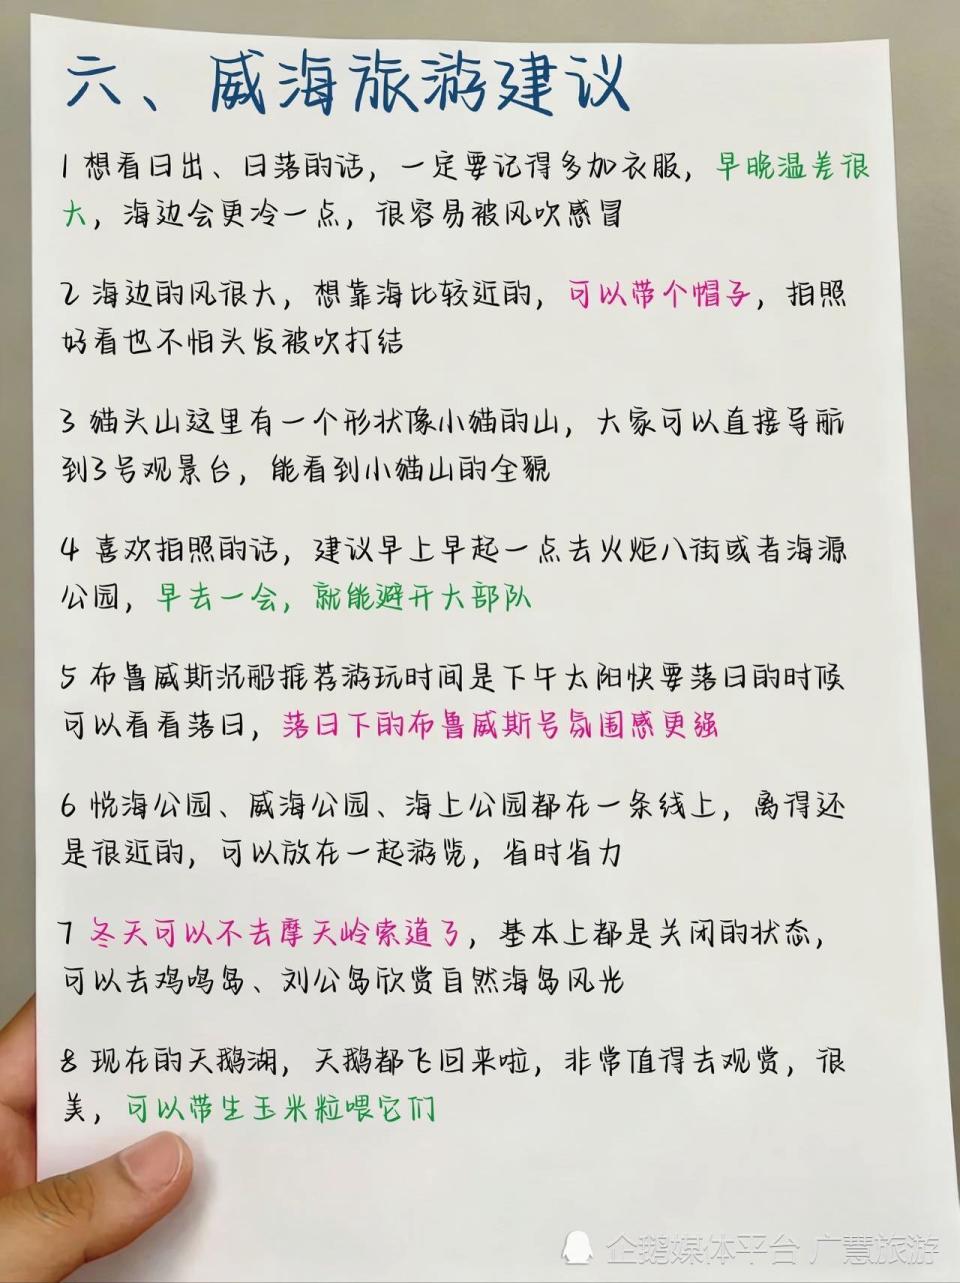 六、威海旅游建议
1 想看日出、日落的话，一定要记得多加衣服，早晚温差很
大，海边会更冷一点，很容易被风吹感冒
2 海边的风很大，想靠海比较近的，可以带个帽子，拍照
好看也不怕头发被吹打结
3 猫头山这里有一个形状像小猫的山，大家可以直接导航
到3号观景台，能看到小猫山的全貌
4 喜欢拍照的话，建议早上早起一点去火炬八街或者海源
公园，早去一会，就能避开大部队
5 布鲁威斯沉船推荐游玩时间是下午太阳快要落日的时候
可以看看落日，落日下的布鲁威斯号氛围感更强
6 悦海公园、威海公园、海上公园都在一条线上，离得还
是很近的，可以放在一起游览，省时省力
7 冬天可以不去摩天岭索道了，基本上都是关闭的状态，
可以去鸡鸣岛、刘公岛欣赏自然海岛风光
8 现在的天鹅湖，天鹅都飞回来啦，非常值得去观赏，很
美，可以带生玉米粒喂它们
企鹅媒体平台 广慧旅游